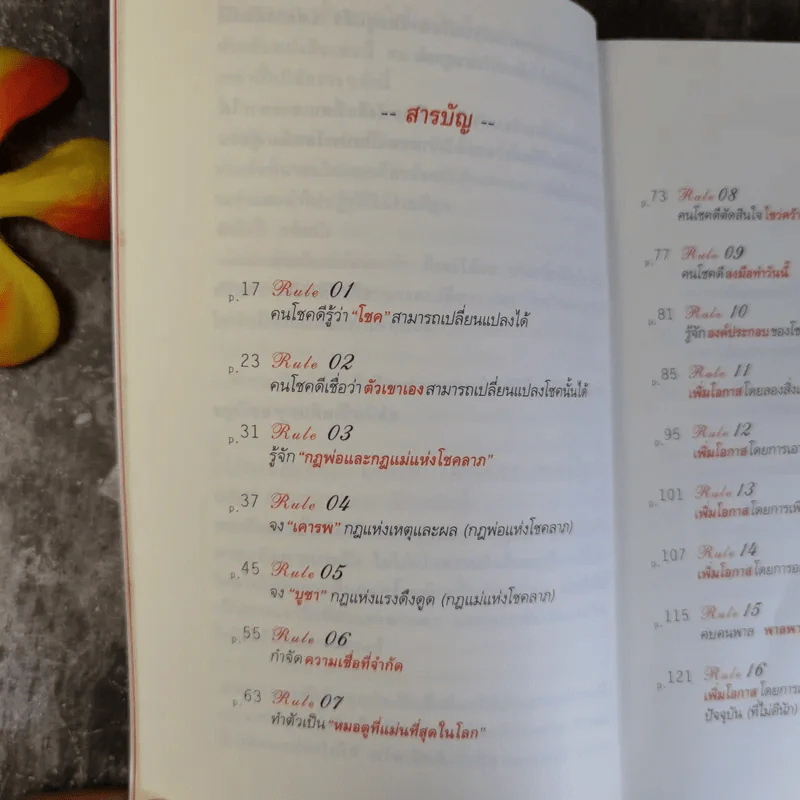 -- สารบัญ --
p.17 Rule 01
คนโชคดีรู้ว่า "โชค" สามารถเปลี่ยนแปลงได้
p.23 Rule 02
คนโชคดีเชื่อว่า ตัวเขาเอง สามารถเปลี่ยนแปลงโชคนั้นได้
p.31 Rule 03
รู้จัก "กฎพ่อและกฎแม่แห่งโชคลาภ"
p.37 Rule 04
จง "เคารพ" กฎแห่งเหตุและผล (กฎพ่อแห่งโชคลาภ)
p.45 Rule 05
จง "บูชา" กฎแห่งแรงดึงดูด (กฎแม่แห่งโชคลาภ)
p.55 Rule 06
กำจัด ความเชื่อที่จำกัด
p.63 Rule 07
ทำตัวเป็น "หมอดูที่แม่นที่สุดในโลก"
p.73 Rule 08
คนโชคดีตัดสินใจ
p.77 Rule 09
คนโชคดี ลงมือทำวันนี้
p.81 Rule 10
รู้จัก องค์ประกอบ ของ
p.85 Rule 11
เพิ่มโอกาส โดยลองสิ่ง
p.95 Rule 12
เพิ่มโอกาส โดยการ
p.101 Rule 13
เพิ่มโอกาส โดยการ
p.107 Rule 14
เพิ่มโอกาส โดยการ
p.115 Rule 15
คบคนพาล
p.121 Rule 16
เพิ่มโอกาส โดยการ
ปัจจุบัน (ที่ไม่ดีนัก)